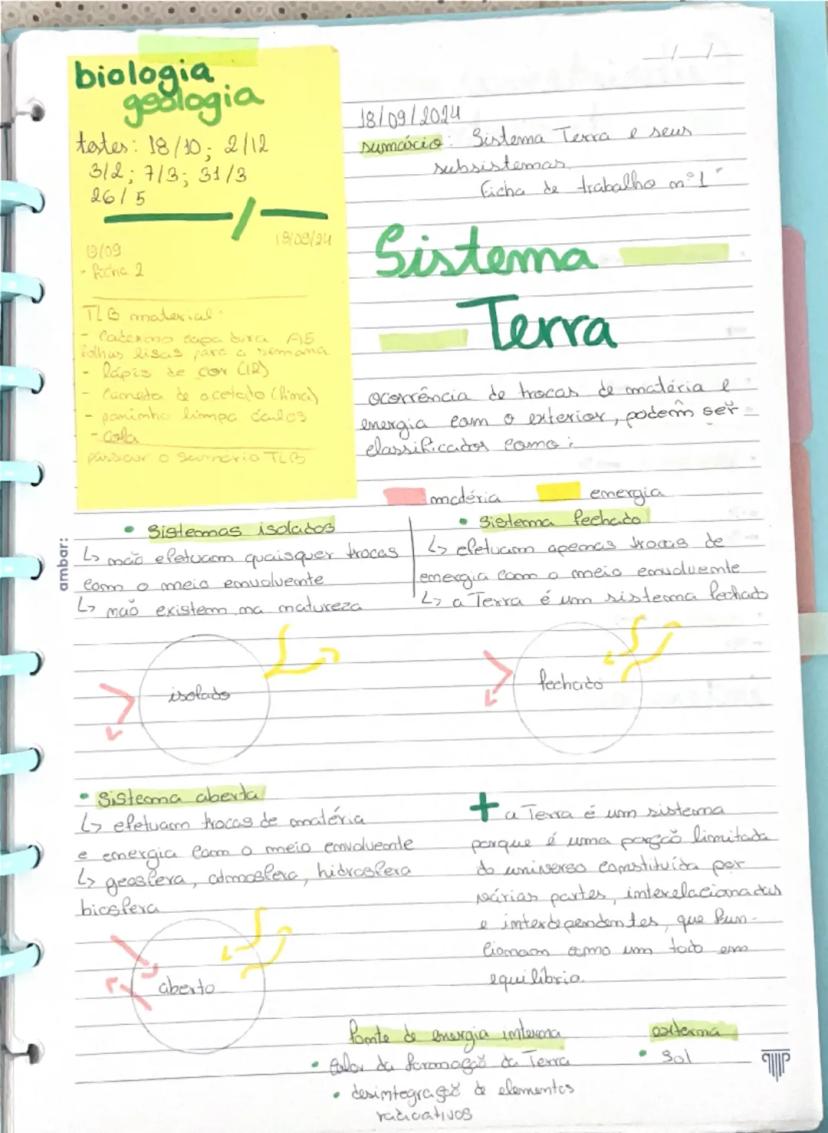 biologia
geologia
testes: 18/10; 2/12
3/2; 7/3; 31/3
26/5
18/09/24
19/09
- ficha 2
TLB material:
- caderno capa dura A5
folhas lisas para a semana
- lápis de cor (12)
- caneta de acetato (fina)
- paninho limpa óculos
- cola
passar o sumário TLB
/ /
18/09/2024
sumário: Sistema Terra e seus
subsistemas.
Ficha de trabalho nº1
Sistema
Terra
ocorrência de trocas de matéria e
energia com o exterior, podem ser
classificados como:
matéria energia
• Sistemas isolados
↳ não efetuam quaisquer trocas
com o meio envolvente
↳ não existem na natureza
• Sistema fechado
↳ efetuam apenas trocas de
energia com o meio envolvente
↳ a Terra é um sistema fechado
isolado
fechado
• Sistema aberta
↳ efetuam trocas de matéria
e energia com o meio envolvente
↳ geosfera, atmosfera, hidrosfera
biosfera
aberto
+ a Terra é um sistema
porque é uma porção limitada
do universo constituída por
várias partes, interelacionadas
e interdependentes, que fun-
cionam como um todo em
equilíbrio.
fonte de energia interna
• calor da formação da Terra
• desintegração de elementos
radioativos
externa
• Sol
ambar: